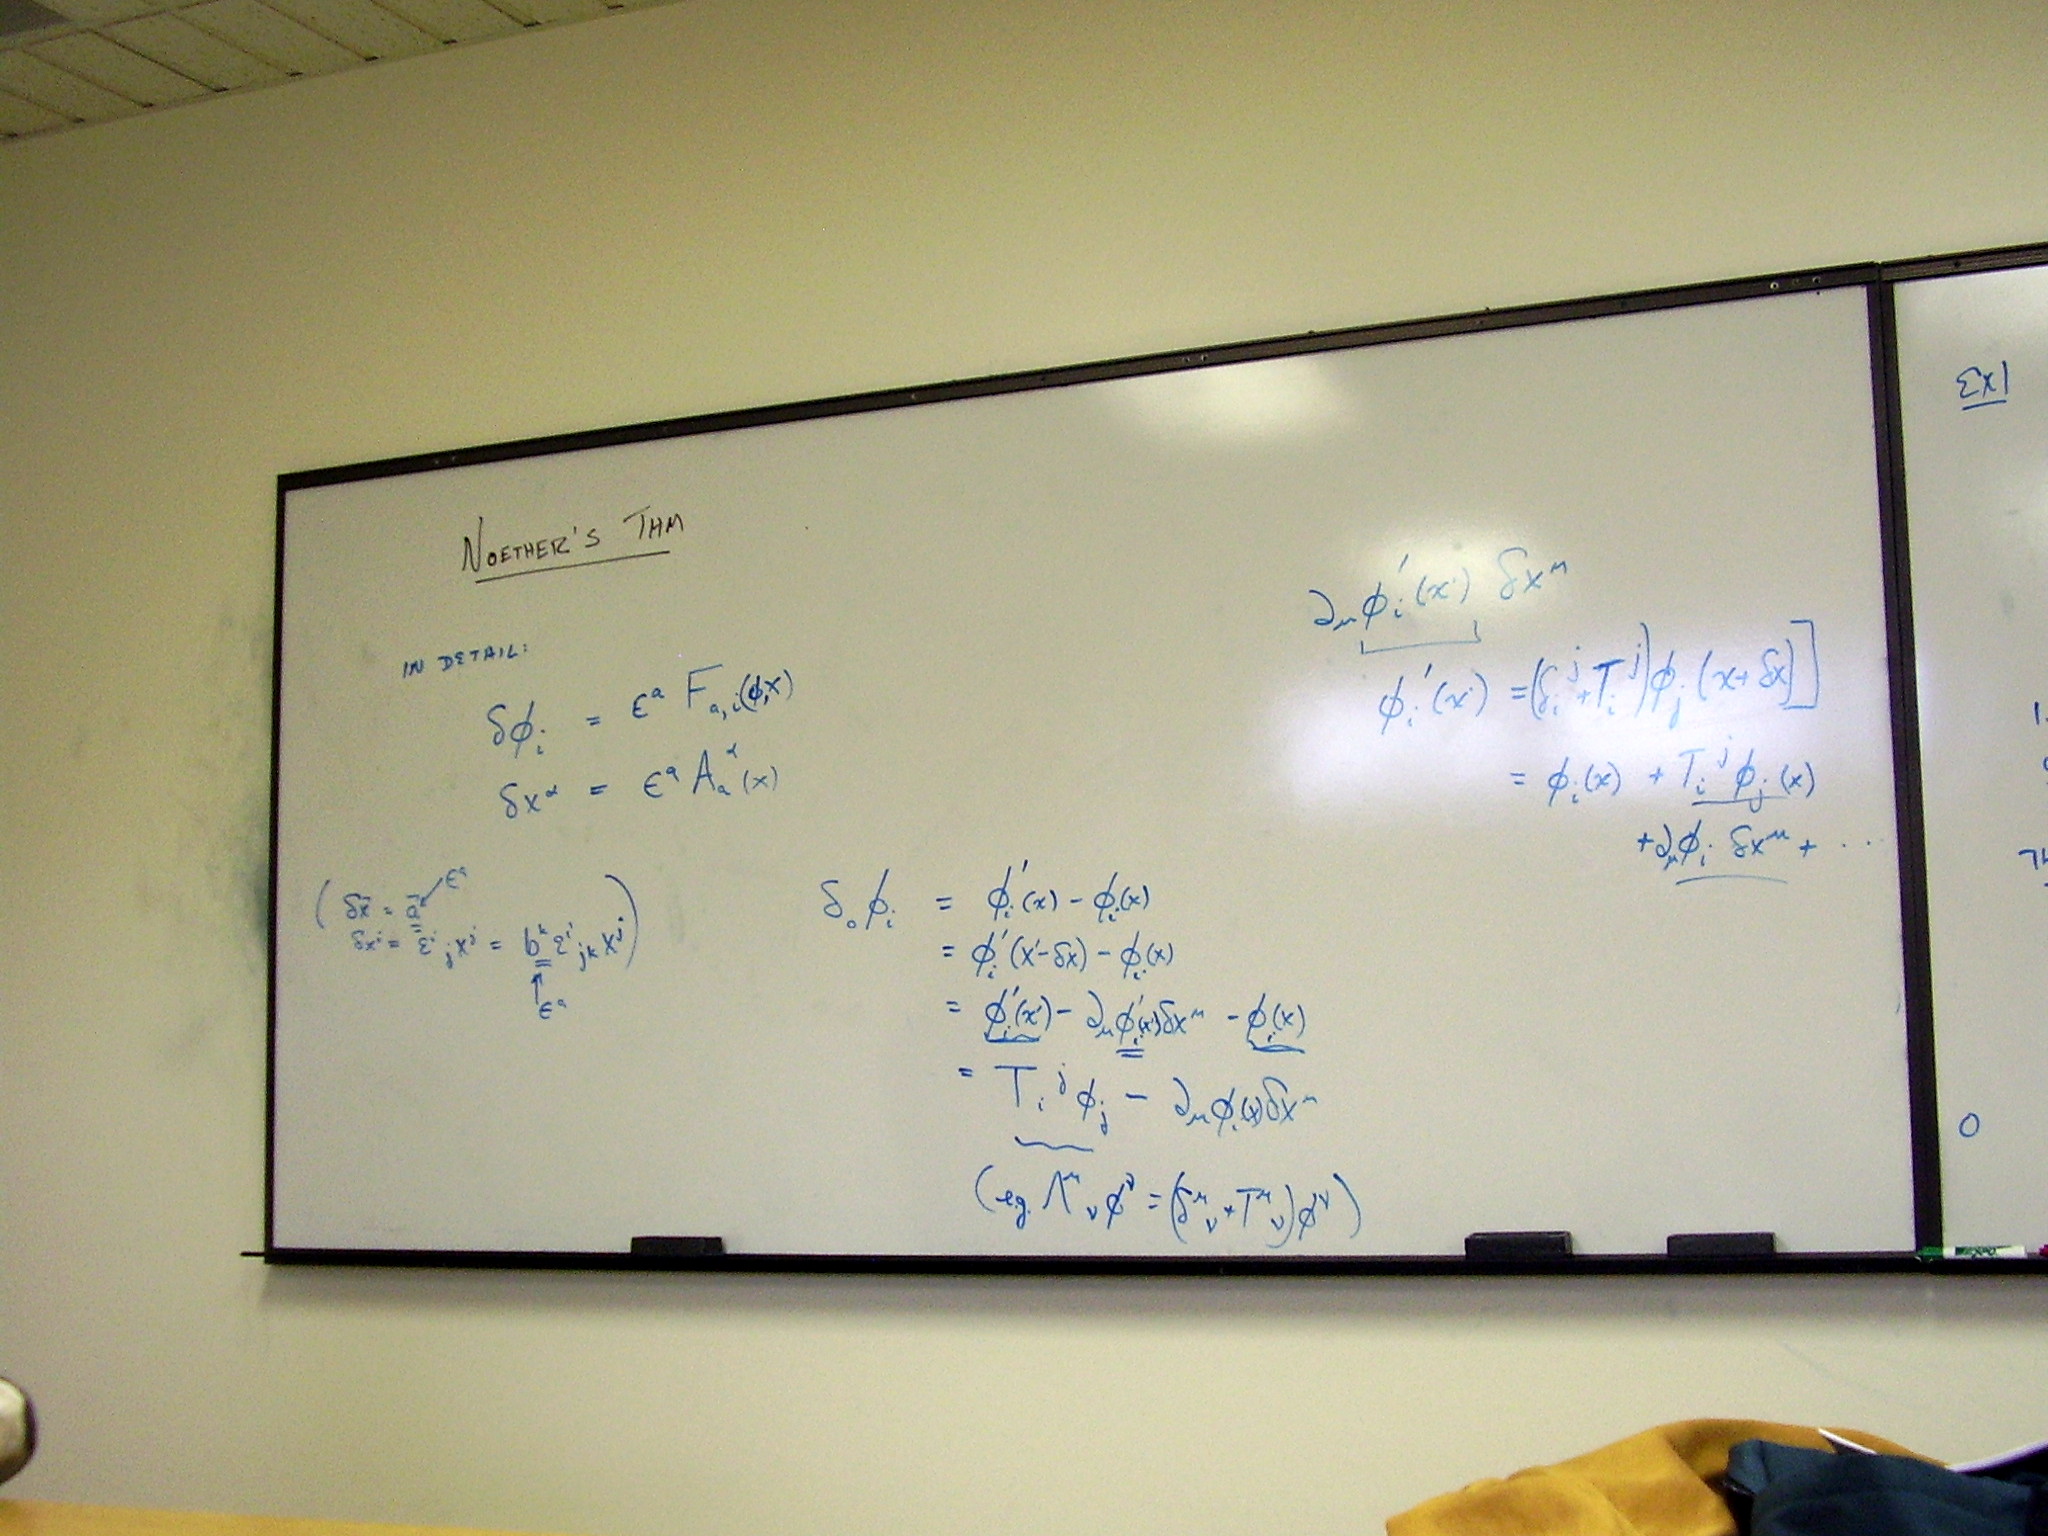 NOETHER'S THM
IN DETAIL:
δϕᵢ = ϵᵃ F_{a,i}(ϕ,x)
δx^α = ϵᵃ A_a^α(x)
(δx⃗ = a⃗ ↙ ϵᵃ
δxⁱ = εⁱ_j xʲ = bᵏ εⁱ_{jk} xʲ)
↑ ϵᵃ
δ₀ϕᵢ = ϕᵢ'(x) - ϕᵢ(x)
= ϕᵢ'(x'-δx) - ϕᵢ(x)
= ϕᵢ'(x') - ∂_μ ϕᵢ'(x')δx^μ - ϕᵢ(x)
= Tᵢʲ ϕⱼ - ∂_μ ϕᵢ(x)δx^μ
(eg. Λ^μ_ν ϕ^ν = (δ^μ_ν + T^μ_ν)ϕ^ν)
∂_μ ϕᵢ'(x') δx^μ
ϕᵢ'(x') = (δᵢʲ + Tᵢʲ)ϕⱼ(x+δx)]
= ϕᵢ(x) + Tᵢʲ ϕⱼ(x)
+ ∂_μ ϕᵢ δx^μ + ...
Ex 1
0
EXPO